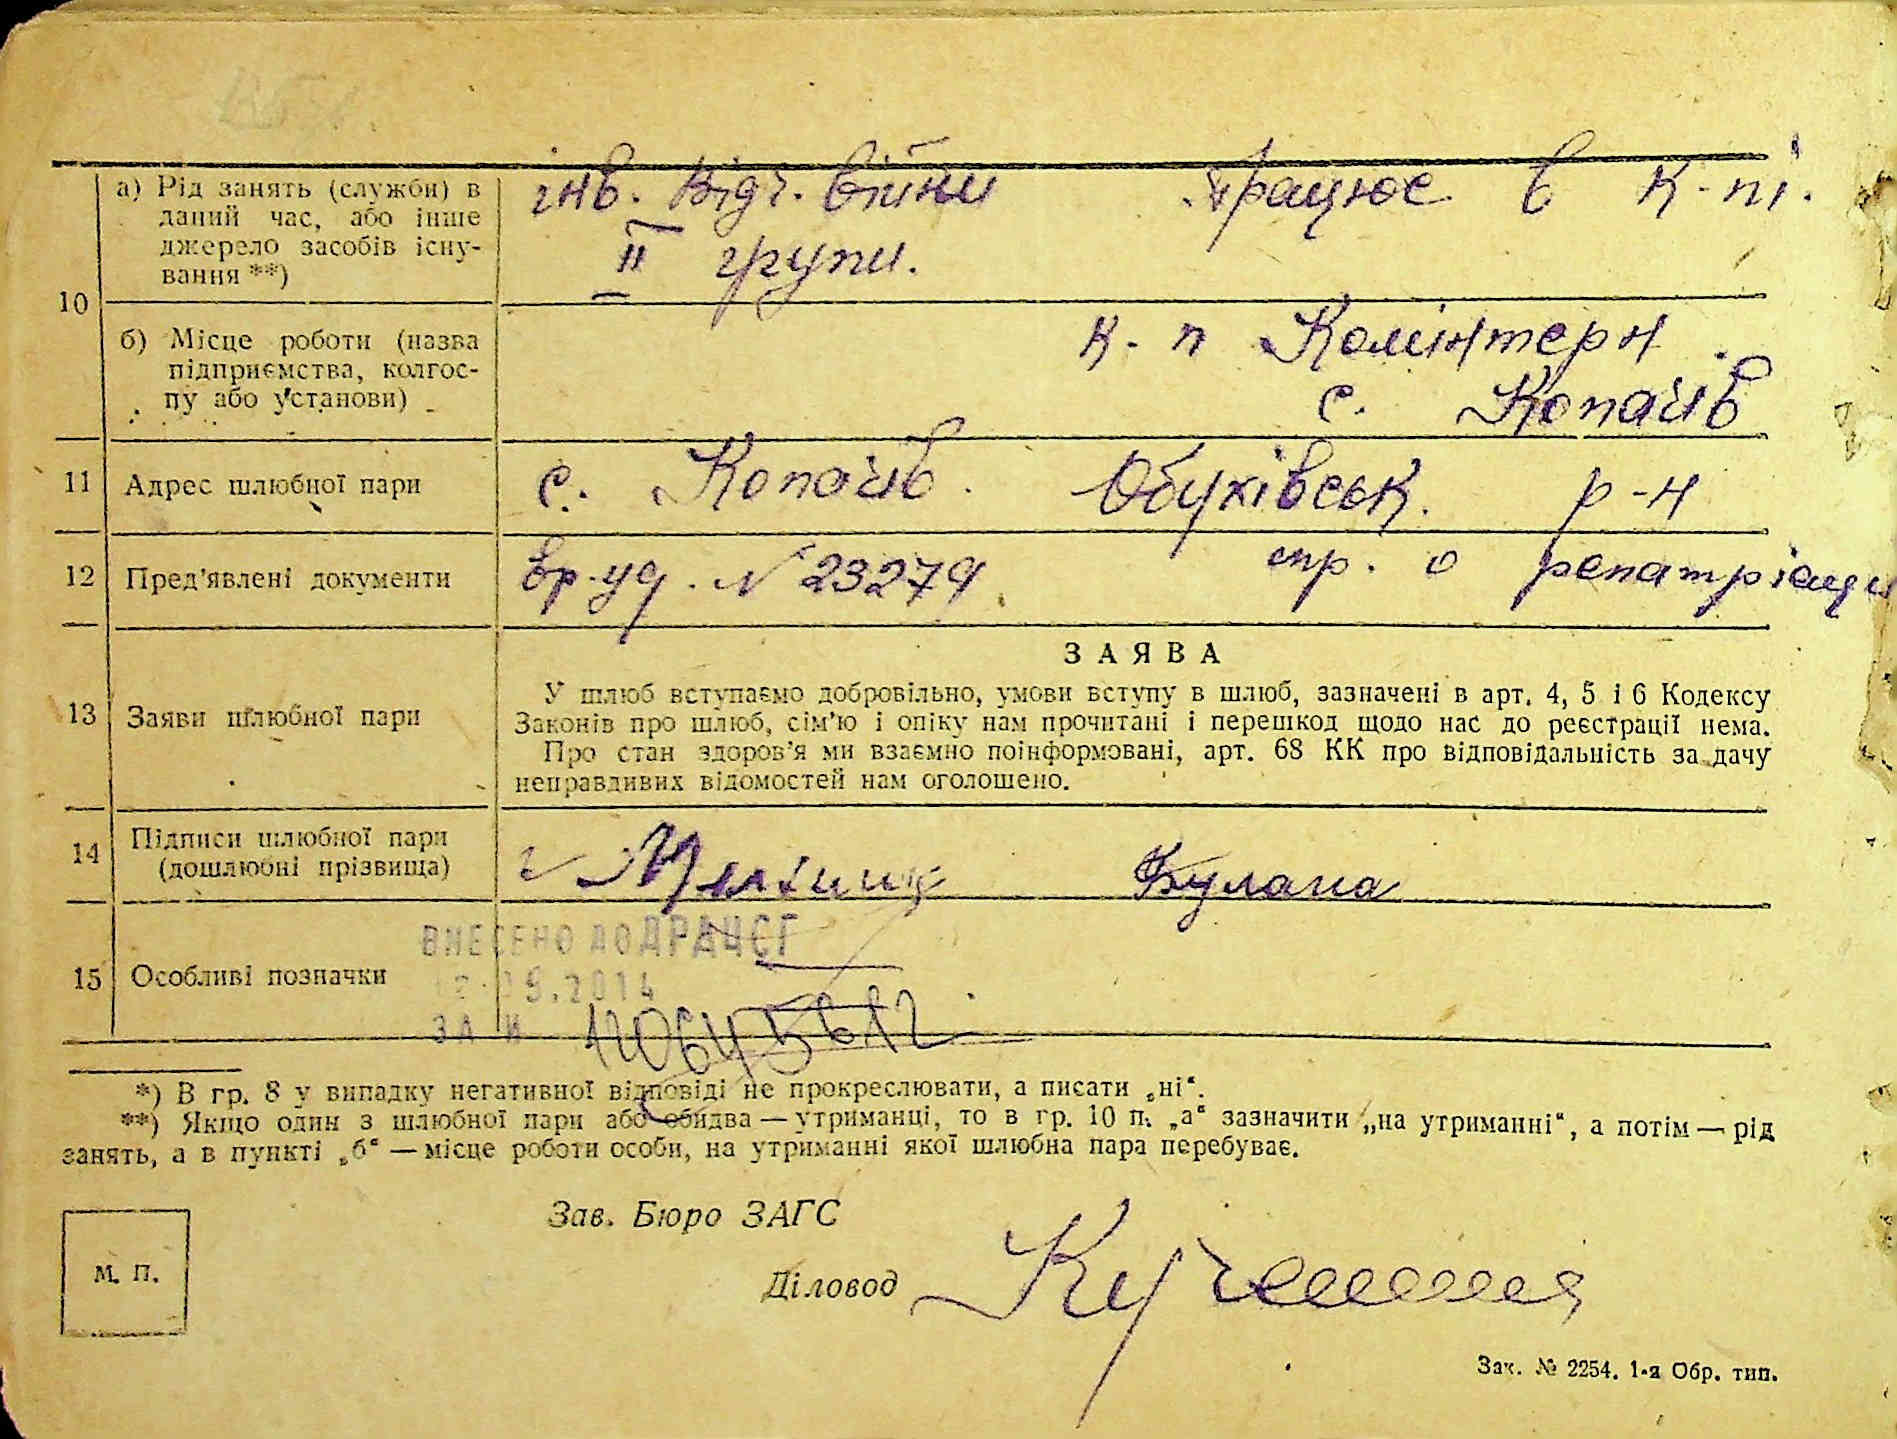 10
а) Рід занять (служби) в
даний час, або інше
джерело засобів існу-
вання **)
інв. Відч. війни
ІІ групи.
Працює в к-пі.
б) Місце роботи (назва
підприємства, колгос-
пу або установи)
к-п Комінтерн
с. Копачів
11 Адрес шлюбної пари
с. Копачів. Обухівськ. р-н
12 Пред’явлені документи
вр. уд. № 23279
спр. о репатріаци
13 Заяви шлюбної пари
ЗАЯВА
У шлюб вступаємо добровільно, умови вступу в шлюб, зазначені в арт. 4, 5 і 6 Кодексу
Законів про шлюб, сім’ю і опіку нам прочитані і перешкод щодо нас до реєстрації нема.
Про стан здоров’я ми взаємно поінформовані, арт. 68 КК про відповідальність за дачу
неправдивих відомостей нам оголошено.
14 Підписи шлюбної пари
(дошлюбні прізвища)
Мельник
15 Особливі позначки
ВНЕСЕНО ДО ДРАЦСГ
.2014
ЗА №
*) В гр. 8 у випадку негативної відповіді не прокреслювати, а писати „ні“.
**) Якщо один з шлюбної пари або обидва — утриманці, то в гр. 10 п. „а“ зазначити „на утриманні“, а потім — рід
занять, а в пункті „б“ — місце роботи особи, на утриманні якої шлюбна пара перебуває.
Зав. Бюро ЗАГС
М. П.
Діловод
Зак. № 2254. 1-а Обр. тип.